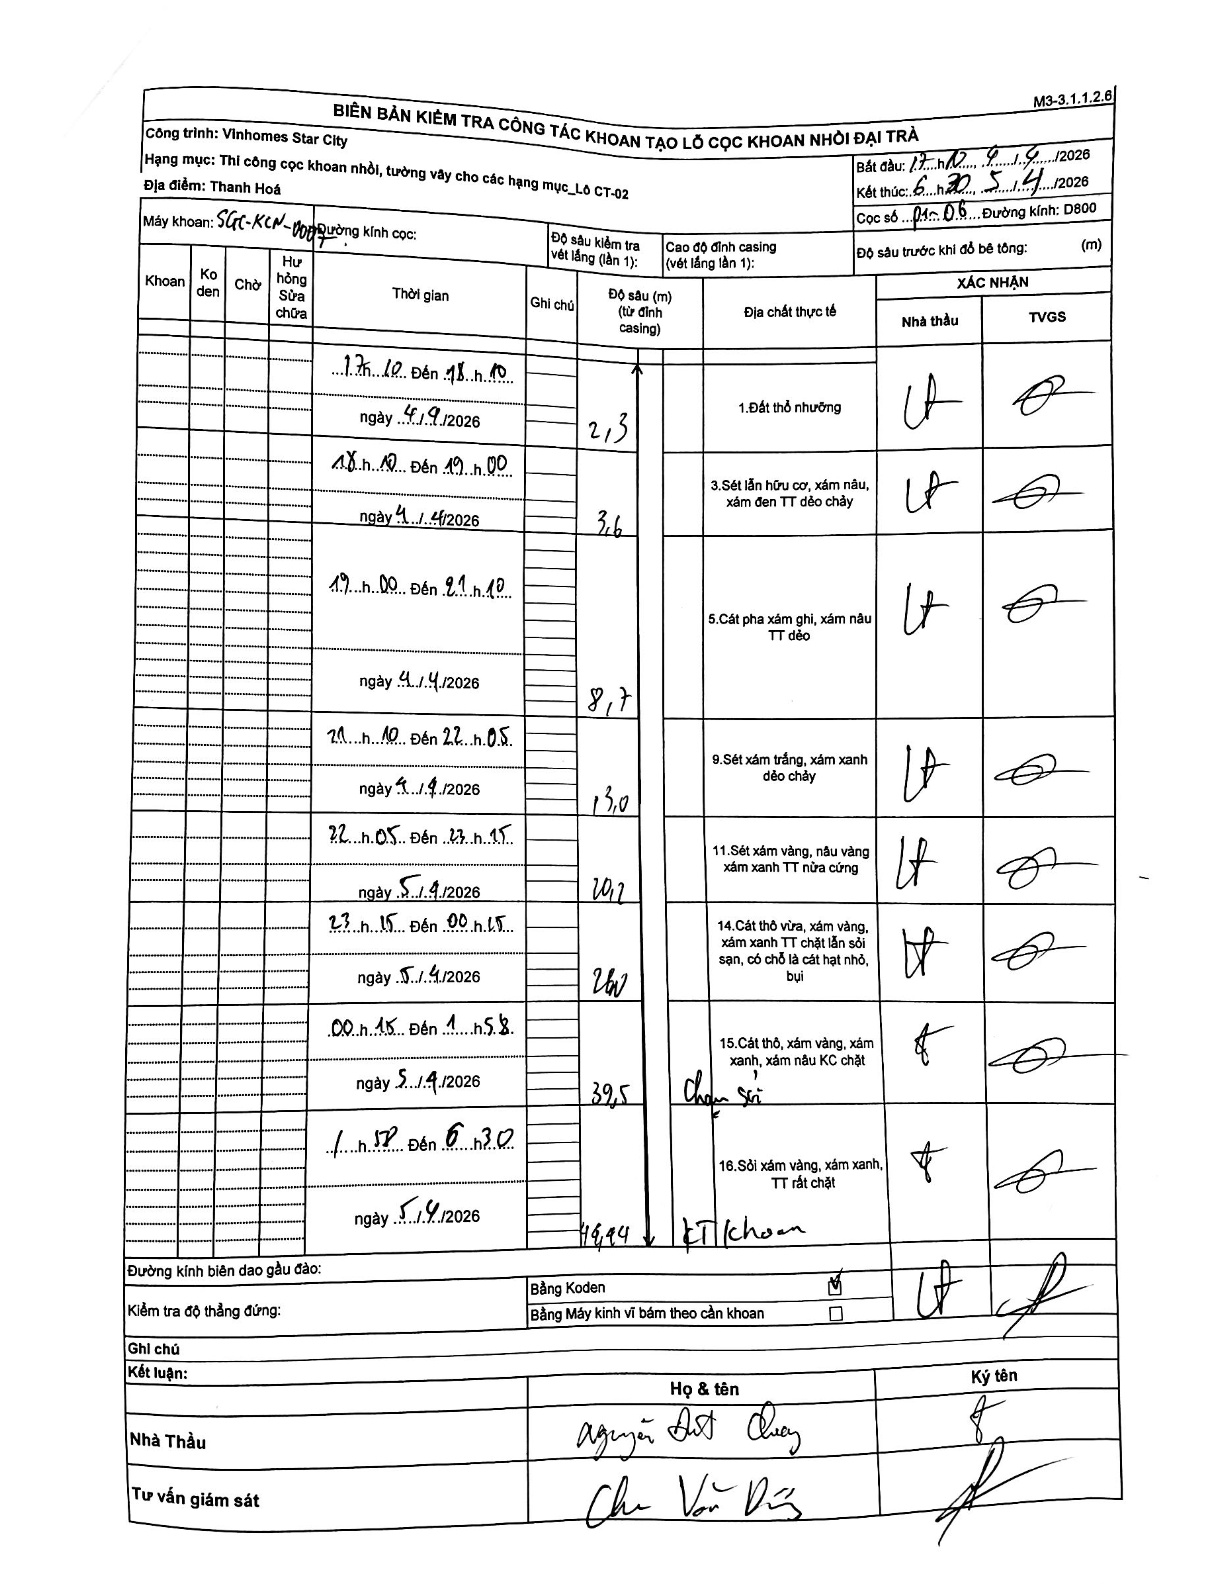 M3-3.1.1.2.6
BIÊN BẢN KIỂM TRA CÔNG TÁC KHOAN TẠO LỖ CỌC KHOAN NHỒI ĐẠI TRÀ
Công trình: Vinhomes Star City
Hạng mục: Thi công cọc khoan nhồi, tường vây cho các hạng mục_Lô CT-02
Địa điểm: Thanh Hoá
Bắt đầu: 17 h 10, 4/4/2026
Kết thúc: 6 h 30, 5/4/2026
Cọc số P1-06 Đường kính: D800
Máy khoan: SGC-KCN-0007
Đường kính cọc:
Độ sâu kiểm tra vét lắng (lần 1):
Cao độ đỉnh casing (vét lắng lần 1):
Độ sâu trước khi đổ bê tông: (m)
Khoan
Ko den
Chờ
Hư hỏng Sửa chữa
Thời gian
Ghi chú
Độ sâu (m) (từ đỉnh casing)
Địa chất thực tế
XÁC NHẬN
Nhà thầu
TVGS
17h 10 Đến 18 h 10
ngày 4/4/2026
2,3
1.Đất thổ nhưỡng
18 h 10 Đến 19 h 00
ngày 4/4/2026
3,6
3.Sét lẫn hữu cơ, xám nâu, xám đen TT dẻo chảy
19 h 00 Đến 21 h 10
ngày 4/4/2026
8,7
5.Cát pha xám ghi, xám nâu TT dẻo
21 h 10 Đến 22 h 05
ngày 4/4/2026
13,0
9.Sét xám trắng, xám xanh dẻo chảy
22 h 05 Đến 23 h 15
ngày 5/4/2026
20,2
11.Sét xám vàng, nâu vàng xám xanh TT nửa cứng
23 h 15 Đến 00 h 15
ngày 5/4/2026
14.Cát thô vừa, xám vàng, xám xanh TT chặt lẫn sỏi sạn, có chỗ là cát hạt nhỏ, bụi
00 h 15 Đến 1 h 58
ngày 5/4/2026
39,5
15.Cát thô, xám vàng, xám xanh, xám nâu KC chặt
Chạm sỏi
1 h 58 Đến 6 h 30
ngày 5/4/2026
16.Sỏi xám vàng, xám xanh, TT rất chặt
KT khoan
Đường kính biên dao gầu đào:
Kiểm tra độ thẳng đứng:
Bằng Koden
Bằng Máy kinh vĩ bám theo cần khoan
Ghi chú
Kết luận:
Họ & tên
Ký tên
Nhà Thầu
Nguyễn
Tư vấn giám sát
Chu Văn